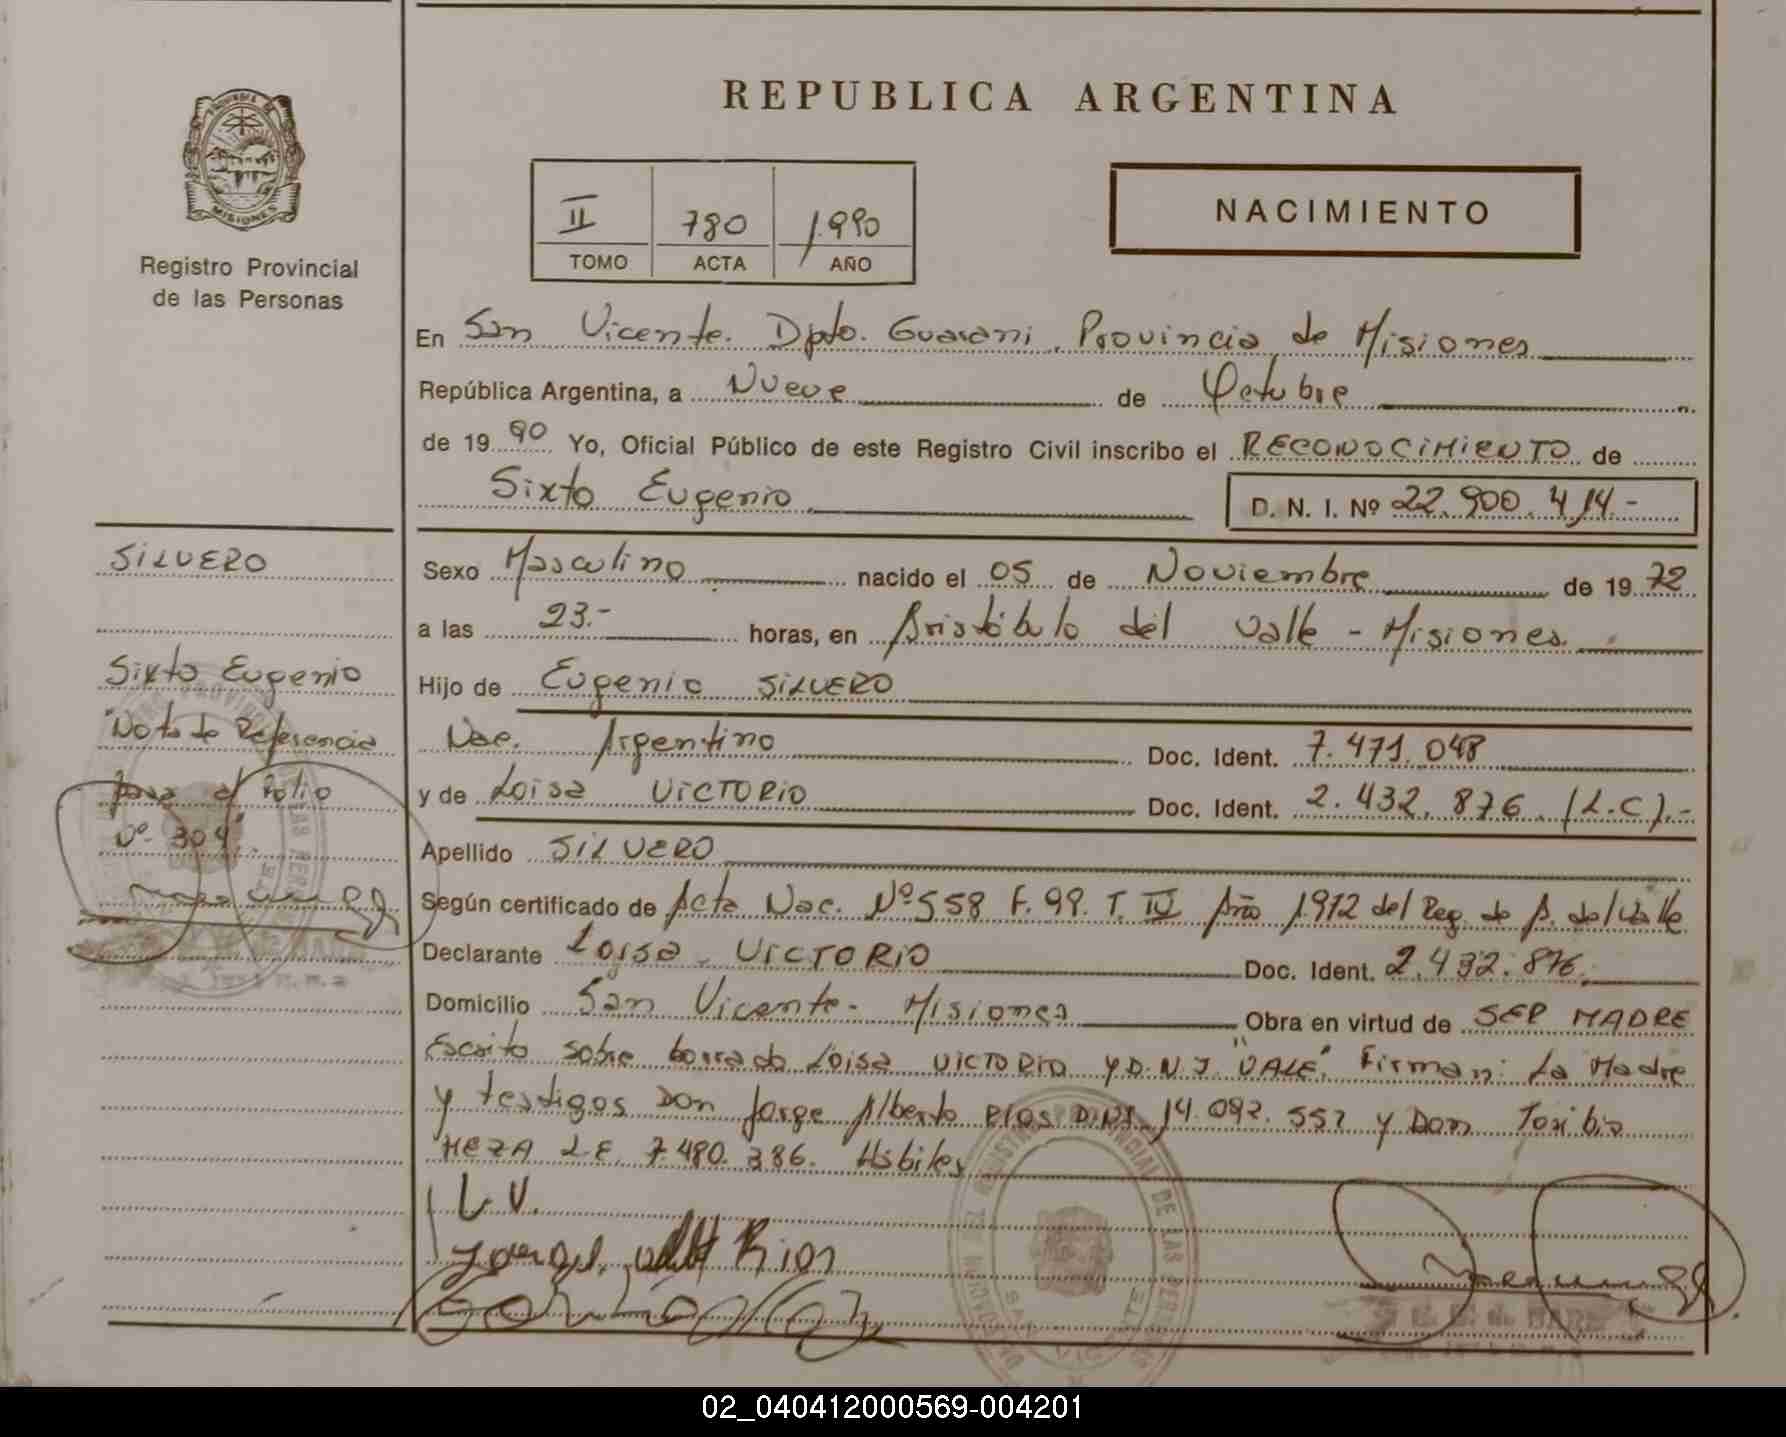 REPUBLICA ARGENTINA
MISIONES
Registro Provincial
de las Personas
II 780 1.990
TOMO ACTA AÑO
NACIMIENTO
En San Vicente. Dpto. Guarani. Provincia de Misiones
República Argentina, a Nueve de Octubre
de 1990 Yo, Oficial Público de este Registro Civil inscribo el RECONOCIMIENTO de
Sixto Eugenio
D. N. I. Nº 22.900.414.-
SILVERO
Sixto Eugenio
"Nota de Referencia
pasa al Folio
Nº 304"
Sexo Masculino nacido el 05 de Noviembre de 1972
a las 23.- horas, en Aristóbulo del Valle - Misiones.
Hijo de Eugenio SILVERO
Nac. Argentino Doc. Ident. 7.471.048
y de Loisa VICTORIO Doc. Ident. 2.432.876. (L.C).-
Apellido SILVERO
Según certificado de Acta Nac. Nº 558 F. 99. T. IV Año 1972 del Reg. de A. del Valle
Declarante Loisa VICTORIO Doc. Ident. 2.432.876.
Domicilio San Vicente - Misiones Obra en virtud de SER MADRE
Escrito sobre borrado Loisa VICTORIO Y D.N.I. "VALE". Firman: La Madre
y testigos Don Jorge Alberto RIOS D.N.I. 14.092.557 y Don Toribio
MEZA L.E. 7.480.386. Hábiles
L V.
Rios
02_040412000569-004201